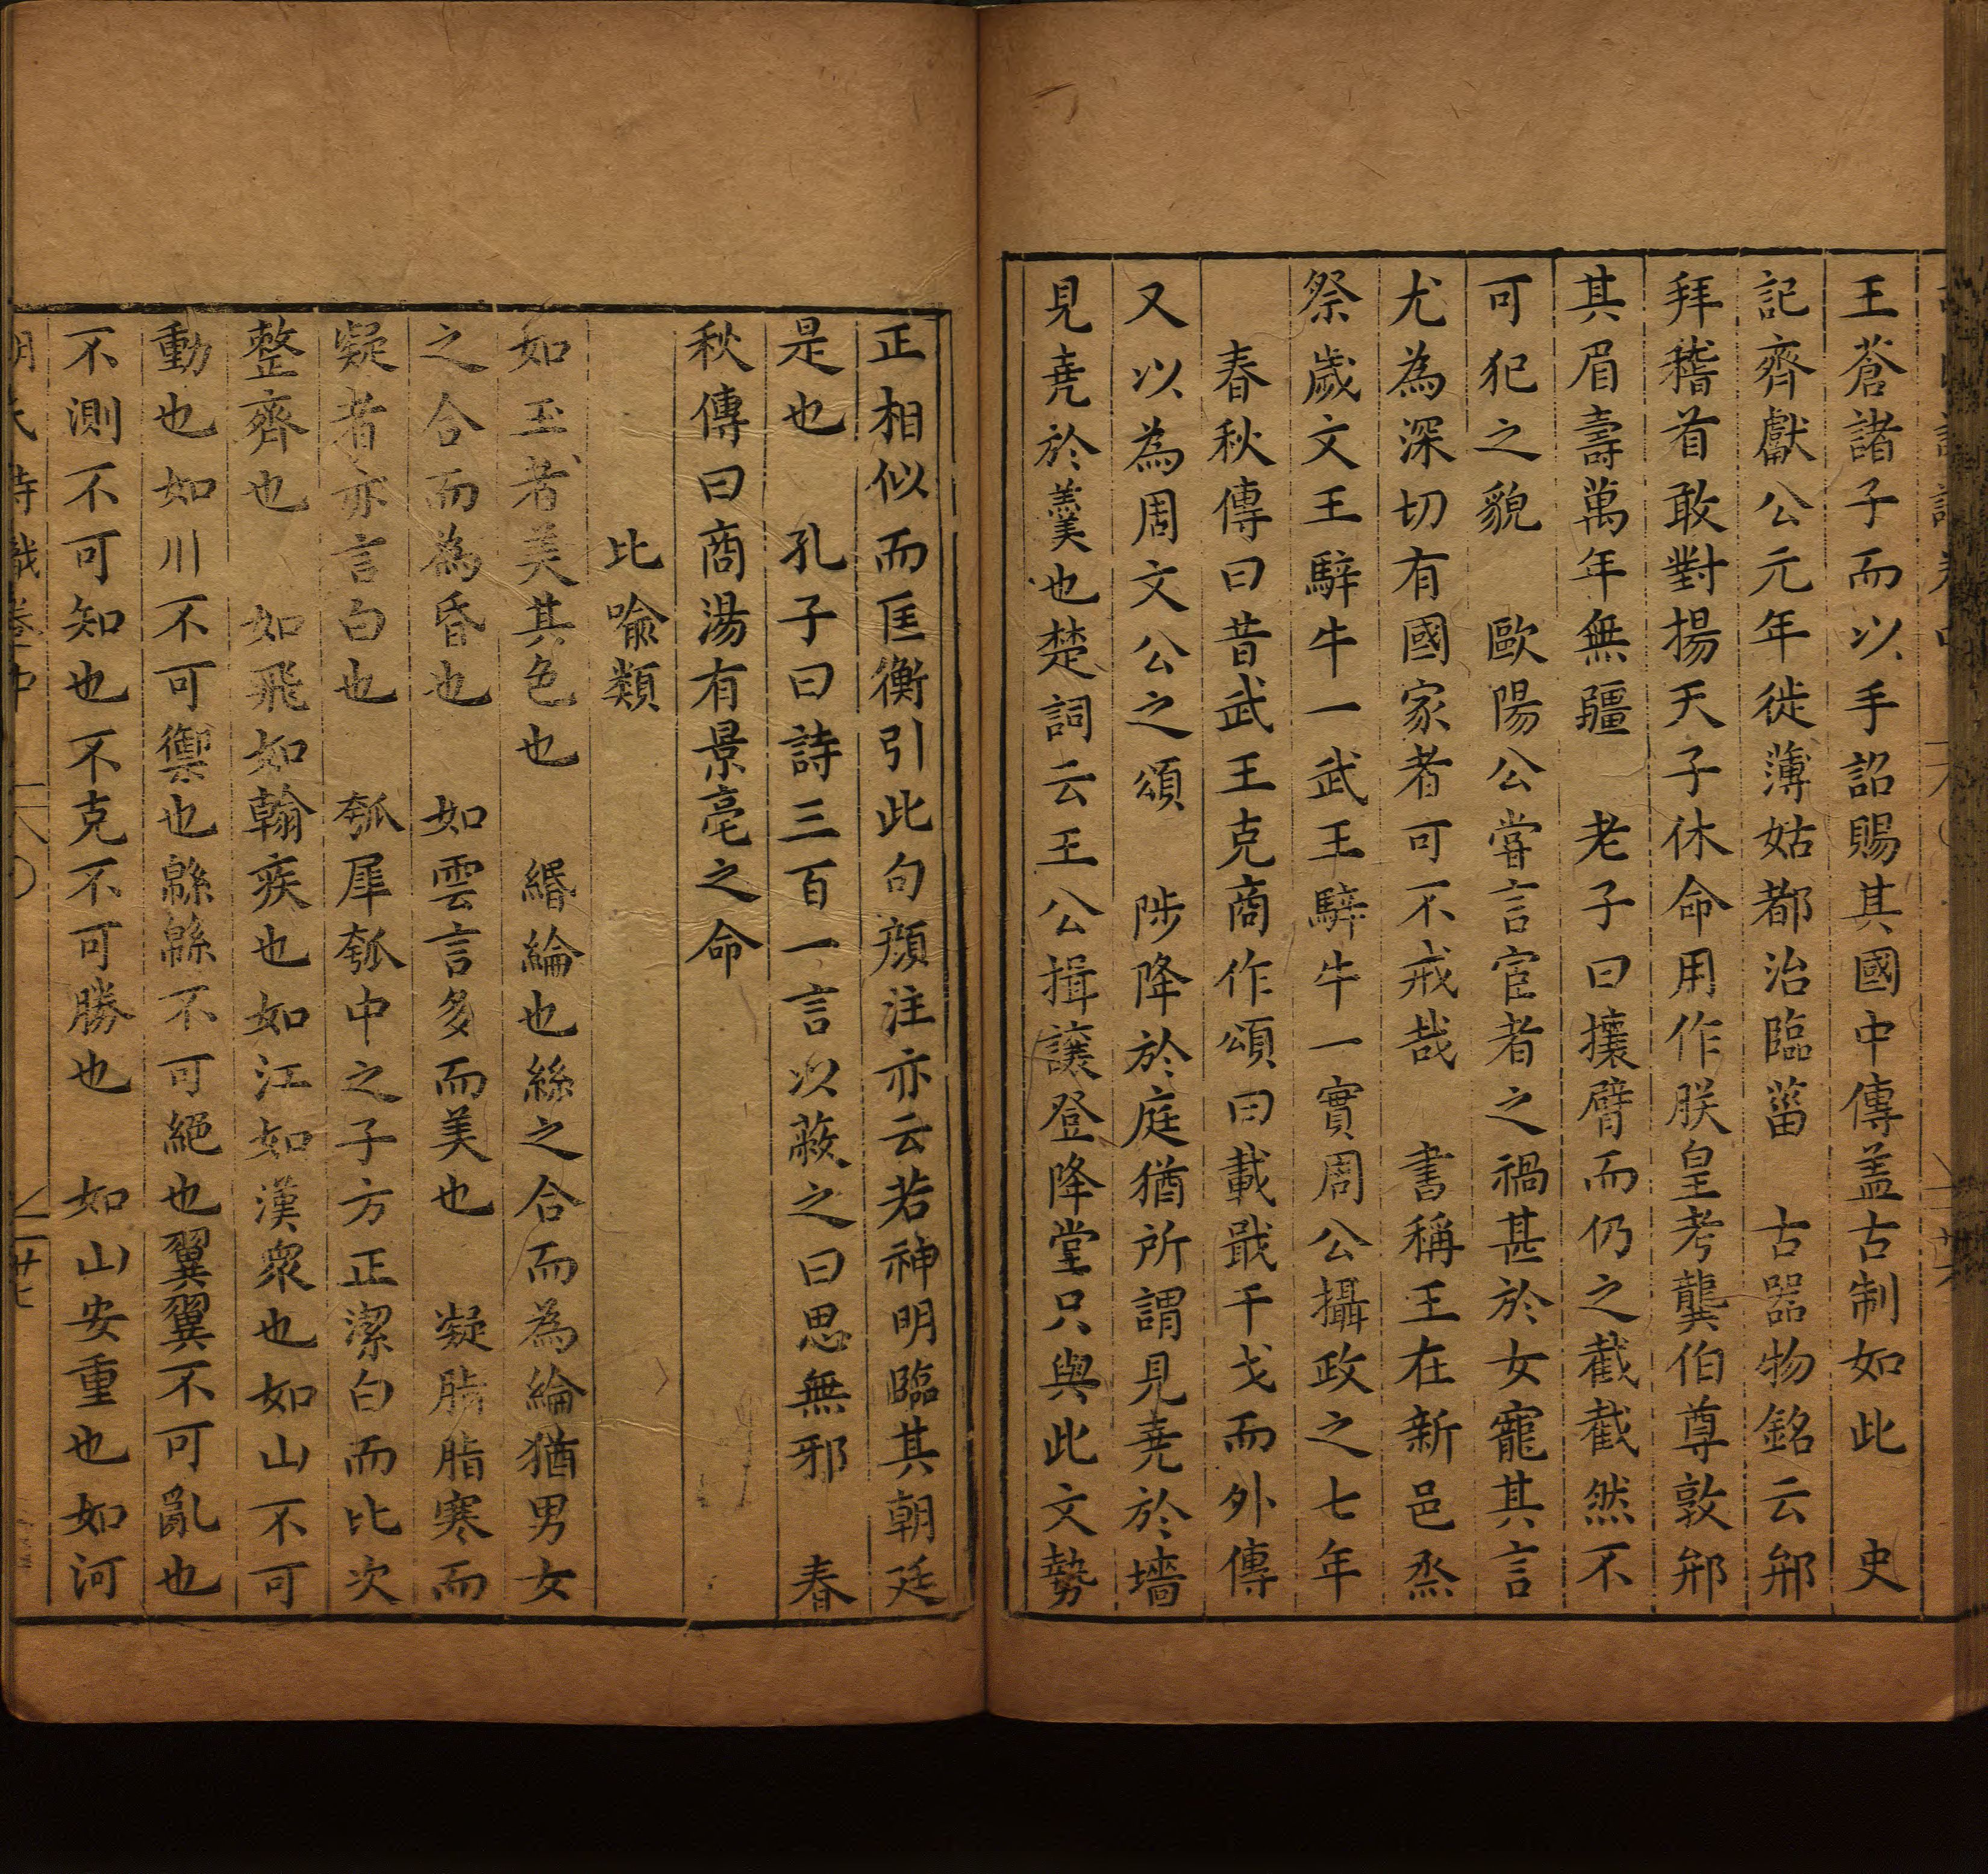 王蒼諸子而以手詔賜其國中傳盖古制如此　史
記齊獻公元年徙薄姑都治臨菑　古器物銘云䢼
拜稽首敢對揚天子休命用作朕皇考龔伯尊敦䢼
其眉壽萬年無疆　老子曰攘臂而仍之截截然不
可犯之貌　歐陽公甞言宦者之禍甚於女寵其言
尤為深切有國家者可不戒哉　書稱王在新邑烝
祭歲文王騂牛一武王騂牛一實周公攝政之七年
春秋傳曰昔武王克商作頌曰載戢干戈而外傳
又以為周文公之頌　陟降於庭猶所謂見堯於墻
見堯於羹也楚詞云王公揖讓登降堂只與此文勢
正相似而匡衡引此句顔注亦云若神明臨其朝廷
是也　孔子曰詩三百一言以蔽之曰思無邪　春
秋傳曰商湯有景亳之命
比喻類
如玉者美其色也　緡綸也絲之合而為綸猶男女
之合而為昏也　如雲言多而美也　凝脂脂寒而
凝者亦言白也　瓠犀瓠中之子方正潔白而比次
整齊也　如飛如翰疾也如江如漢衆也如山不可
動也如川不可禦也緜緜不可絕也翼翼不可亂也
不測不可知也不克不可勝也　如山安重也如河